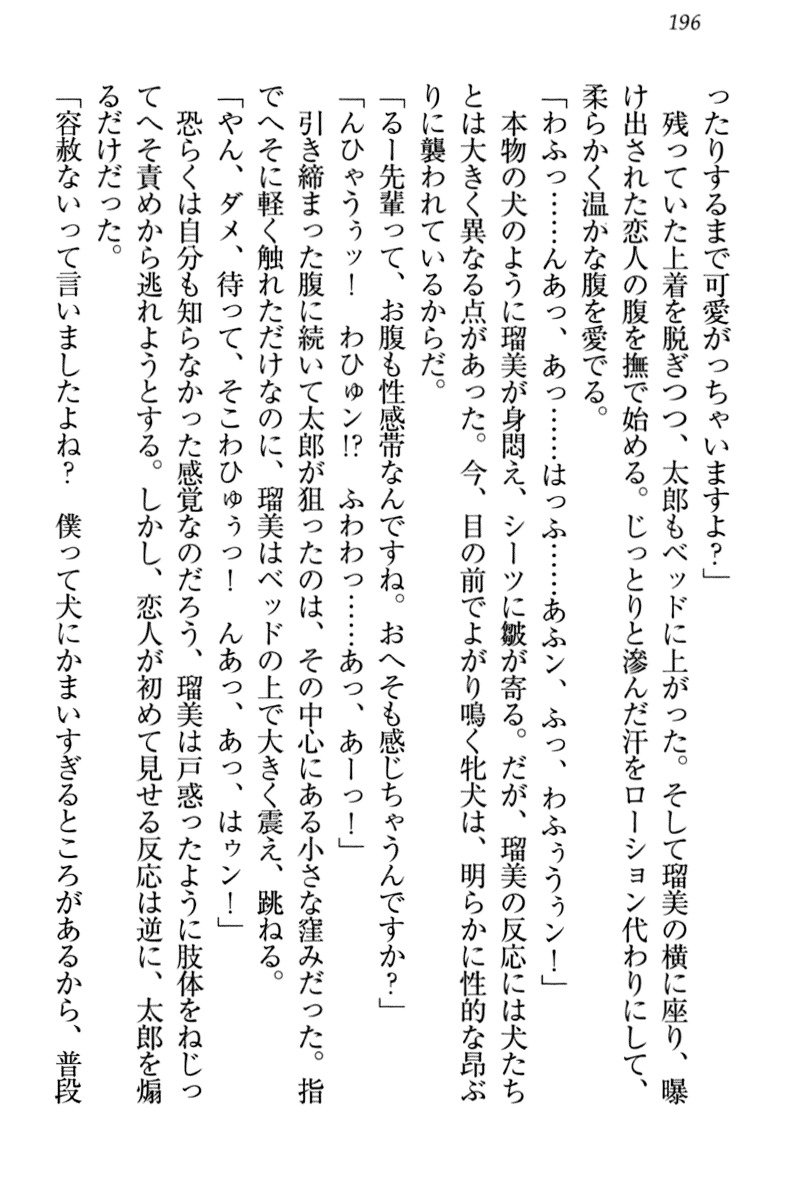 196
ったりするまで可愛がっちゃいますよ？」
残っていた上着を脱ぎつつ、太郎もベッドに上がった。そして瑠美の横に座り、曝
け出された恋人の腹を撫で始める。じっとりと滲んだ汗をローション代わりにして、
柔らかく温かな腹を愛でる。
「わふっ……んあっ、あっ……はっふ……あふン、ふっ、わふぅうぅン！」
本物の犬のように瑠美が身悶え、シーツに皺が寄る。だが、瑠美の反応には犬たち
とは大きく異なる点があった。今、目の前でよがり鳴く牝犬は、明らかに性的な昂ぶ
りに襲われているからだ。
「るー先輩って、お腹も性感帯なんですね。おへそも感じちゃうんですか？」
「んひゃうぅッ！　わひゅン!?　ふわわっ……あっ、あーっ！」
引き締まった腹に続いて太郎が狙ったのは、その中心にある小さな窪みだった。指
でへそに軽く触れただけなのに、瑠美はベッドの上で大きく震え、跳ねる。
「やん、ダメ、待って、そこわひゅぅっ！　んあっ、あっ、はゥン！」
恐らくは自分も知らなかった感覚なのだろう、瑠美は戸惑ったように肢体をねじっ
てへそ責めから逃れようとする。しかし、恋人が初めて見せる反応は逆に、太郎を煽
るだけだった。
「容赦ないって言いましたよね？　僕って犬にかまいすぎるところがあるから、普段